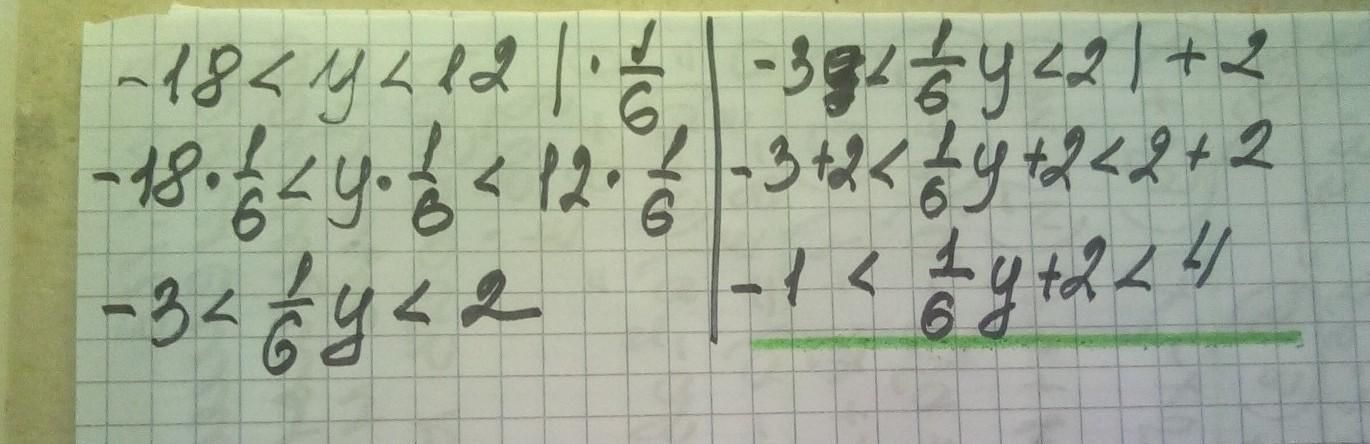 -18 < y < 12 | · 1/6
-18 · 1/6 < y · 1/6 < 12 · 1/6
-3 < 1/6 y < 2
-3 < 1/6 y < 2 | + 2
-3 + 2 < 1/6 y + 2 < 2 + 2
-1 < 1/6 y + 2 < 4